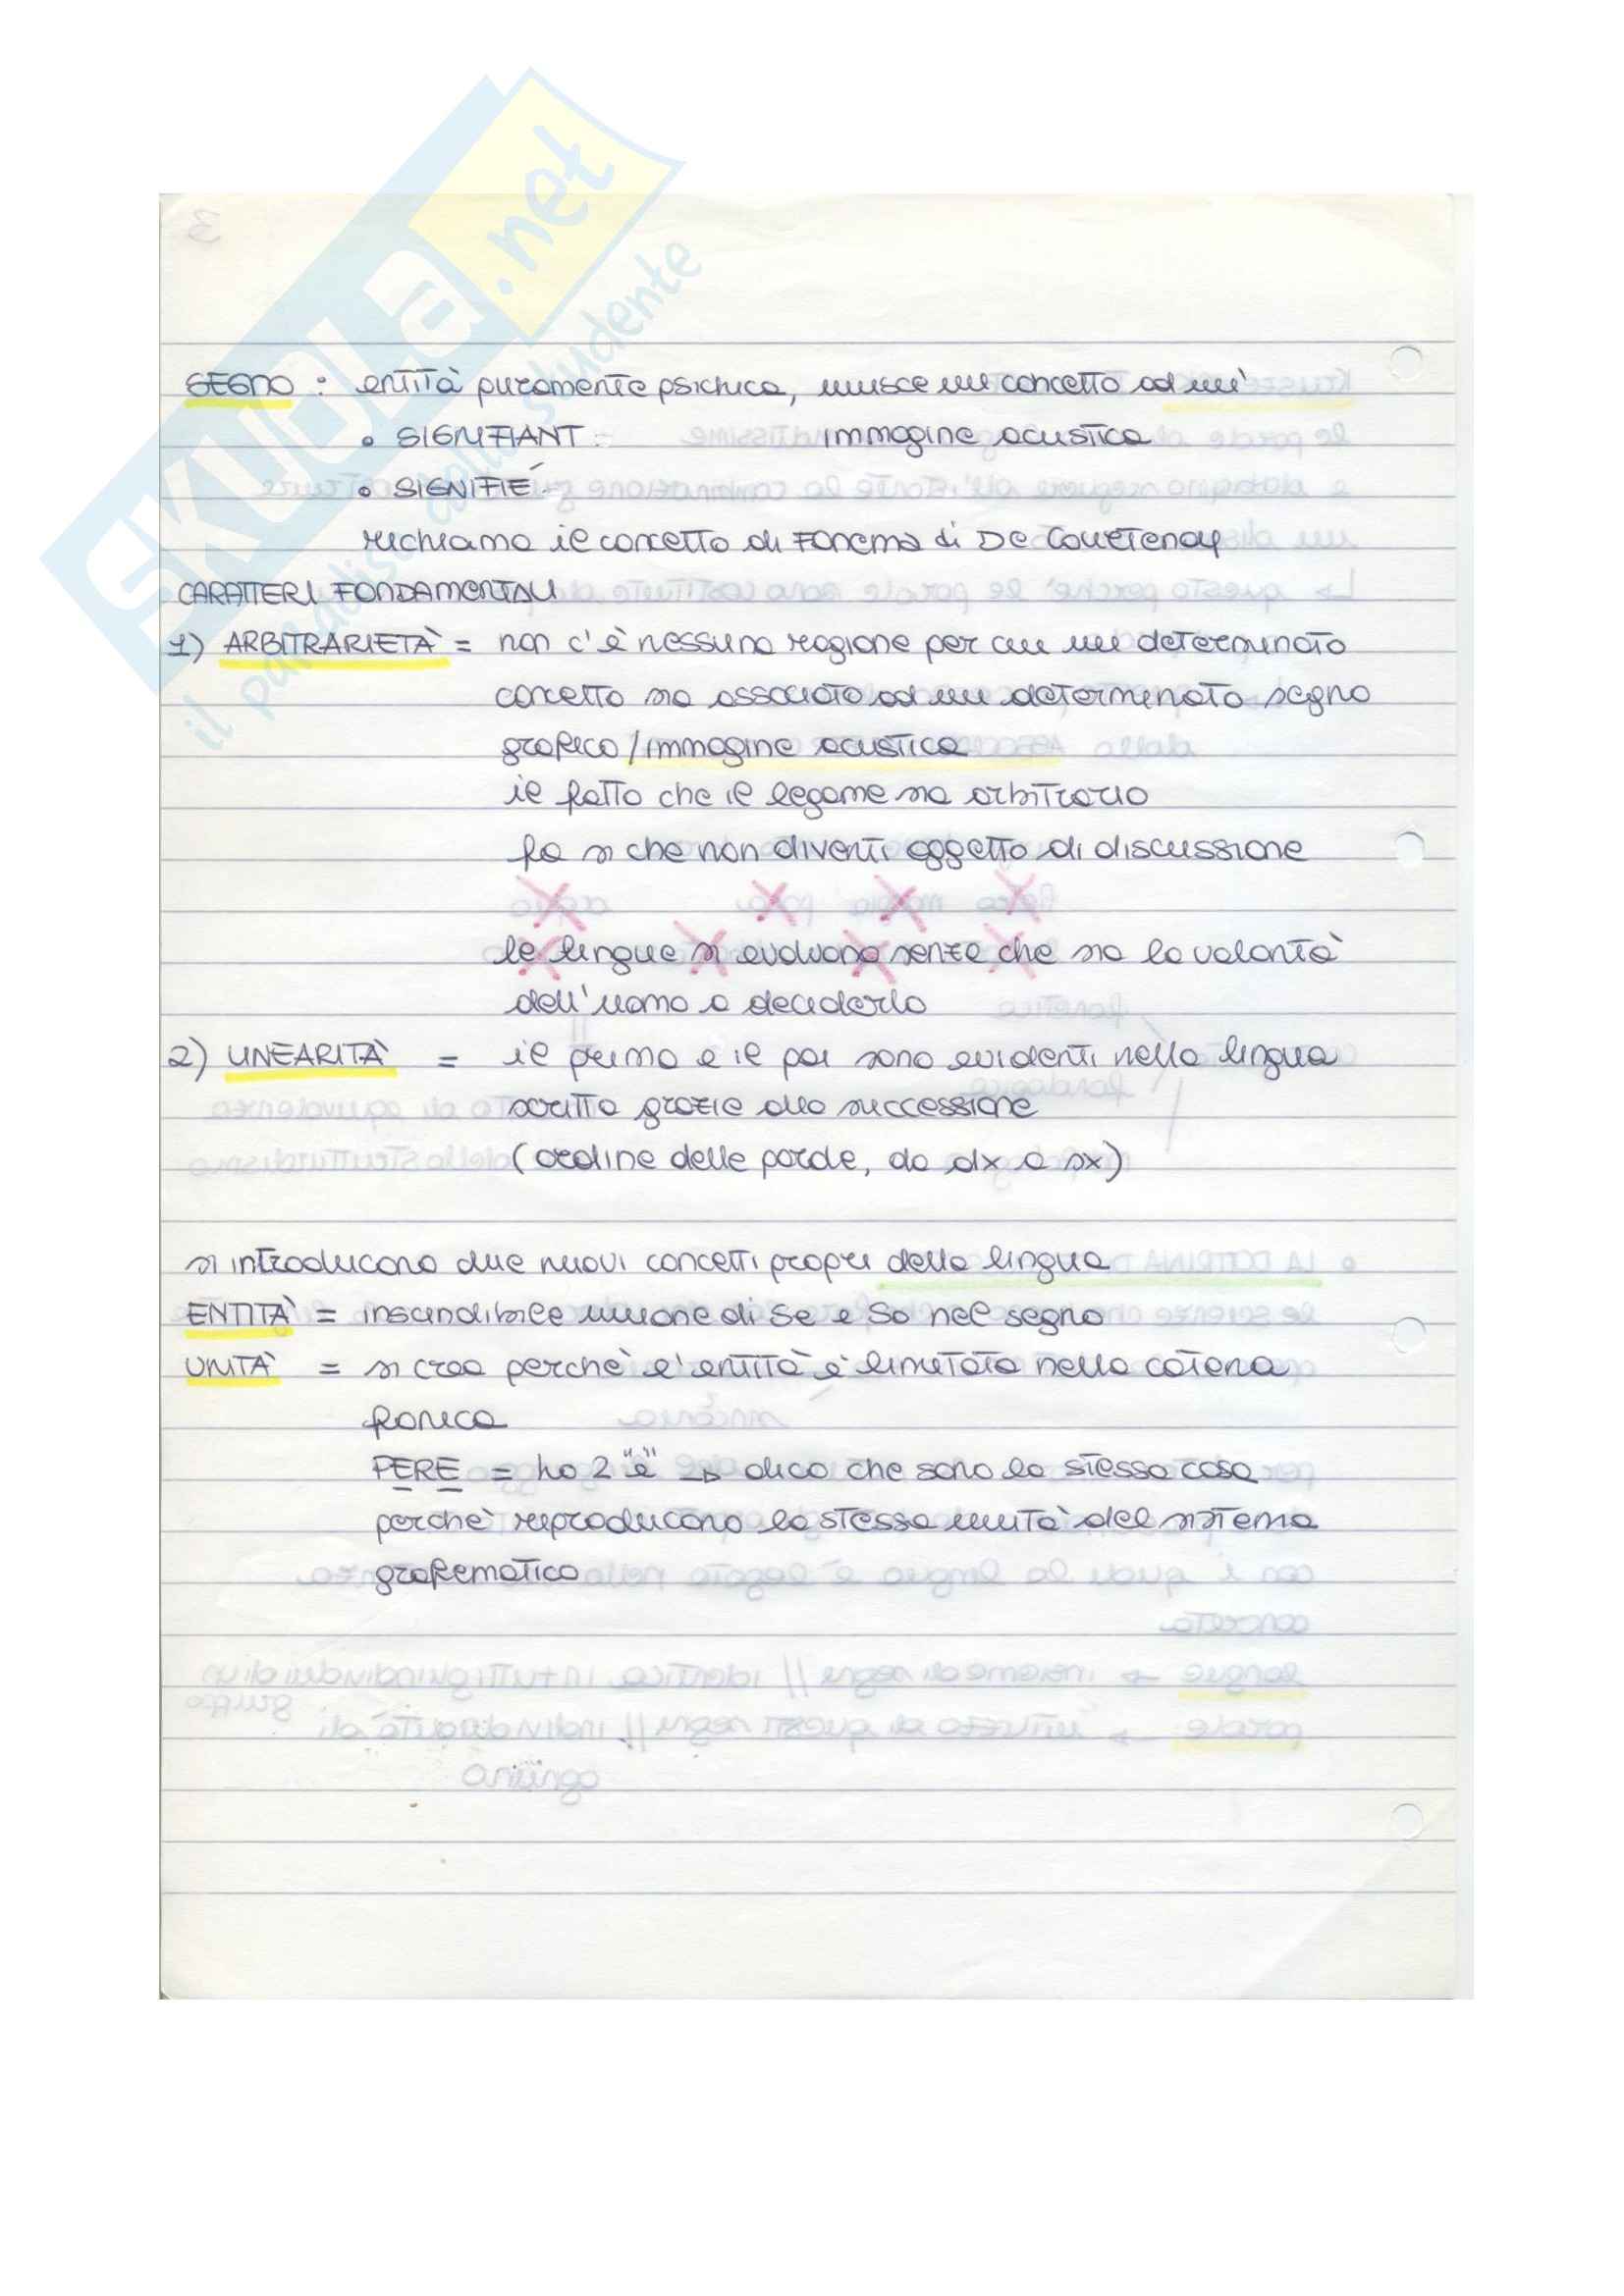 SKUOLA.net
il paradiso dello studente
SEGNO : entità puramente psichica, unisce un concetto ad un'
• SIGNIFIANT : immagine acustica
• SIGNIFIÉ -
richiama il concetto di Fonema di De Courtenay
CARATTERI FONDAMENTALI
1) ARBITRARIETÀ = non c'è nessuna ragione per cui un determinato
concetto sia associato ad un determinato segno
grafico / immagine acustica
il fatto che il legame sia arbitrario
fa sì che non diventi oggetto di discussione
le lingue si evolvono senza che sia la volontà
dell'uomo a deciderlo
2) LINEARITÀ = il prima e il poi sono evidenti nella lingua
scritta grazie alla successione
(ordine delle parole, da dx a sx)
si introducono due nuovi concetti propri della lingua
ENTITÀ = inscindibile unione di Se e So nel segno
UNITÀ = si crea perchè l'entità è limitata nella catena
fonica
PERE = ho 2 "e" → dico che sono la stessa cosa
perchè riproducono la stessa unità del sistema
grafematico